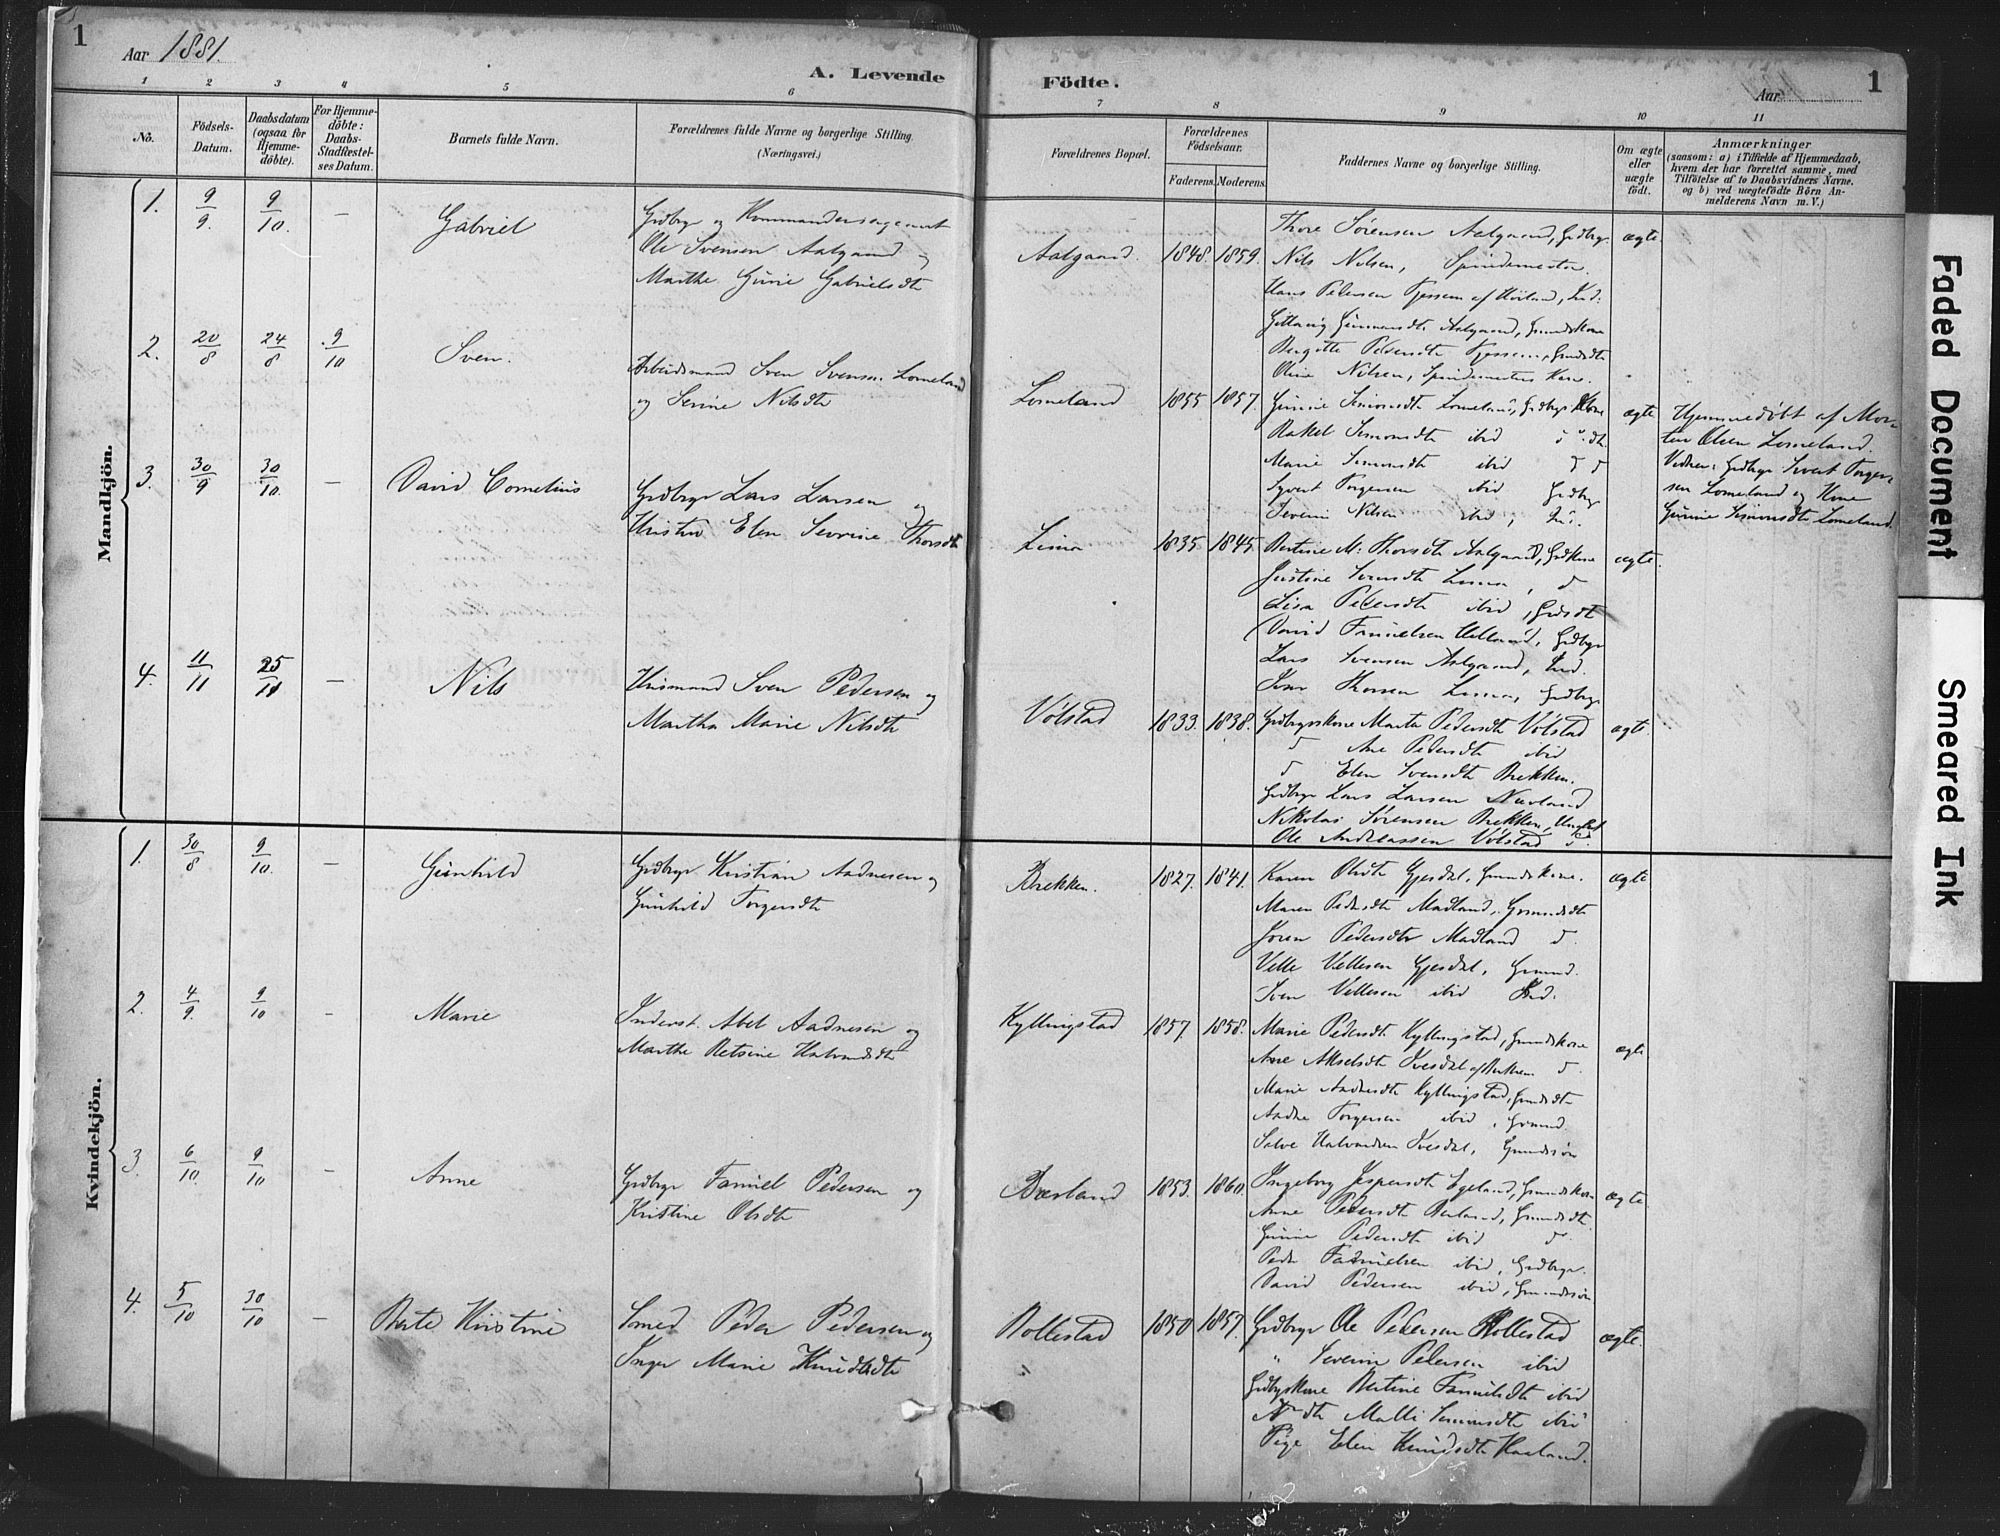 1
Aar 1881.
A. Levende
Födte.
Aar
1
1 2 3 4 5 6 7 8 9 10 11
No.
Födsels-Datum.
Daabsdatum (ogsaa for Hjemme-döbte).
For Hjemme-döbte: Daabs-Stadfæstel-ses Datum.
Barnets fulde Navn.
Forældrenes fulde Navne og borgerlige Stilling.
(Næringsvei.)
Forældrenes Bopæl.
Forældrenes Födselsaar.
Faderens. Moderens.
Faddernes Navne og borgerlige Stilling.
Om ægte eller uægte födt.
Anmærkninger
(saasom: a) i Tilfælde af Hjemmedaab, hvem der har forrettet samme, med Tilföielse af to Daabsvidners Navne. og b) ved uægtefödte Börn An-melderens Navn m. V.)
Mandkjön.
1. 9/9. 9/10. — Gabriel
Grdbrgr og Kommandersergeant
Ole Svensen Aalgaard og
Marthe Gurie Gabrielsdtr
Aalgaard. 1848. 1859.
Thore Sørensen Aalgaard, Grdbrgr.
Nils Nilsen, Spindemester.
Hans Pedersen Tjessem af Høiland, Ind:
Gunnarsdtr Aalgaard, Gmdskone
Bergitte Pedersdtr Tjessem, Gmdsdtr
Oline Nilsen, Spindemesters Kone.
ægte
2. 20/8 24/8 9/10 Sven.
Arbeidsmand Sven Svensen Lomeland
og Serine Nilsdtr
Lomeland 1855 1857.
Gunnie Simonsdtr Lomeland, Grdbrgr Kone
Rakel Simonsdtr ibid
Marie Simonsdtr ibid
Syvert Torgersen ibid Grdbrgr
Severin Nilsen ibid,
ægte
Hjemmedøbt af Mor-
ten Olsen Lomeland.
Vidner: Grdbrgr Sivert Torger-
sen Lomeland og Kone
Gunnie Simonsdtr Lomeland.
3. 30/9 30/10. — David Cornelius
Grdbrgr Lars Larsen og
Kristin Elen Sevrine Thorsdtr
Lima 1835 1845.
Bertine M. Thorsdtr Aalgaard, Grdkone
Justine Svensdtr Lima,
Lisa Pedersdtr ibid, Grdsdtr
David Tanielsen Uelland, Grdbrgr
Lars Svensen Aalgaard, Ind.
Iver Thorsen Lima, Grdbrgr
ægte.
4. 11/11 25/11 — Nils
Husmand Sven Pedersen og
Martha Marie Nilsdtr
Vølstad 1833. 1838.
Grdbrgrskone Marta Pedersdtr Vølstad
Ane Pedersdtr ibid
Elen Svensdtr Brekken.
Grdbrgr Lars Larsen Nævland
Nikolai Sørensen Brekken, Ungkarl
Ole Andreassen Vølstad
ægte.
Kvindekjön.
1. 30/8 9/10. — Gunhild
Grdbrgr Kristian Aadnesen og
Gunhild Torgersdtr
Brekken. 1827. 1841.
Karen Olsdtr Gjesdal, Gmandskone.
Maren Pedersdtr Madland, Gmandsdtr
Joren Pedersdtr Madland
Velle Vellesen Gjesdal, Gmand.
Sven Vellesen ibid Ind.
ægte
2. 4/9. 9/10 — Marie
Inderst. Abel Aadnesen og
Marthe Betsine Halvardsdtr
Kyllingstad 1857. 1858.
Marie Pedersdtr Kyllingstad, Gmandskone
Ane Akselsdtr Ivesdal af Birkrem
Marie Aadnesdtr Kyllingstad, Gmdsdtr
Aadne Torgersen ibid, Gmand.
Salve Halvardsen Ivesdal, Gmandssøn
ægte
3. 6/10. 9/10 — Anne
Grdbrgr Tanniel Pedersen og
Kristine Olsdtr
Bærland 1853. 1860.
Ingeborg Jespersdtr Egeland, Gmandskone
Anne Pedersdtr Bærland, Gmandsdtr.
Gunnie Pedersdtr ibid
Peder Tannielsen ibid, Grdbrgr.
David Pedersen ibid, Gmandssøn
ægte.
4. 5/10 30/10 — Berte Kristine
Smed Peder Pedersen og
Inger Marie Knudsdtr
Bollestad 1850 1857.
Grdbrgr Ole Pedersen Bollestad
" Severin Pedersen ibid
Grdbrgskone Bertine Tannielsdtr ibid
Malli Simonsdtr ibid
Pige Elen Knudsdtr Haaland.
ægte.
Faded Document
Smeared Ink